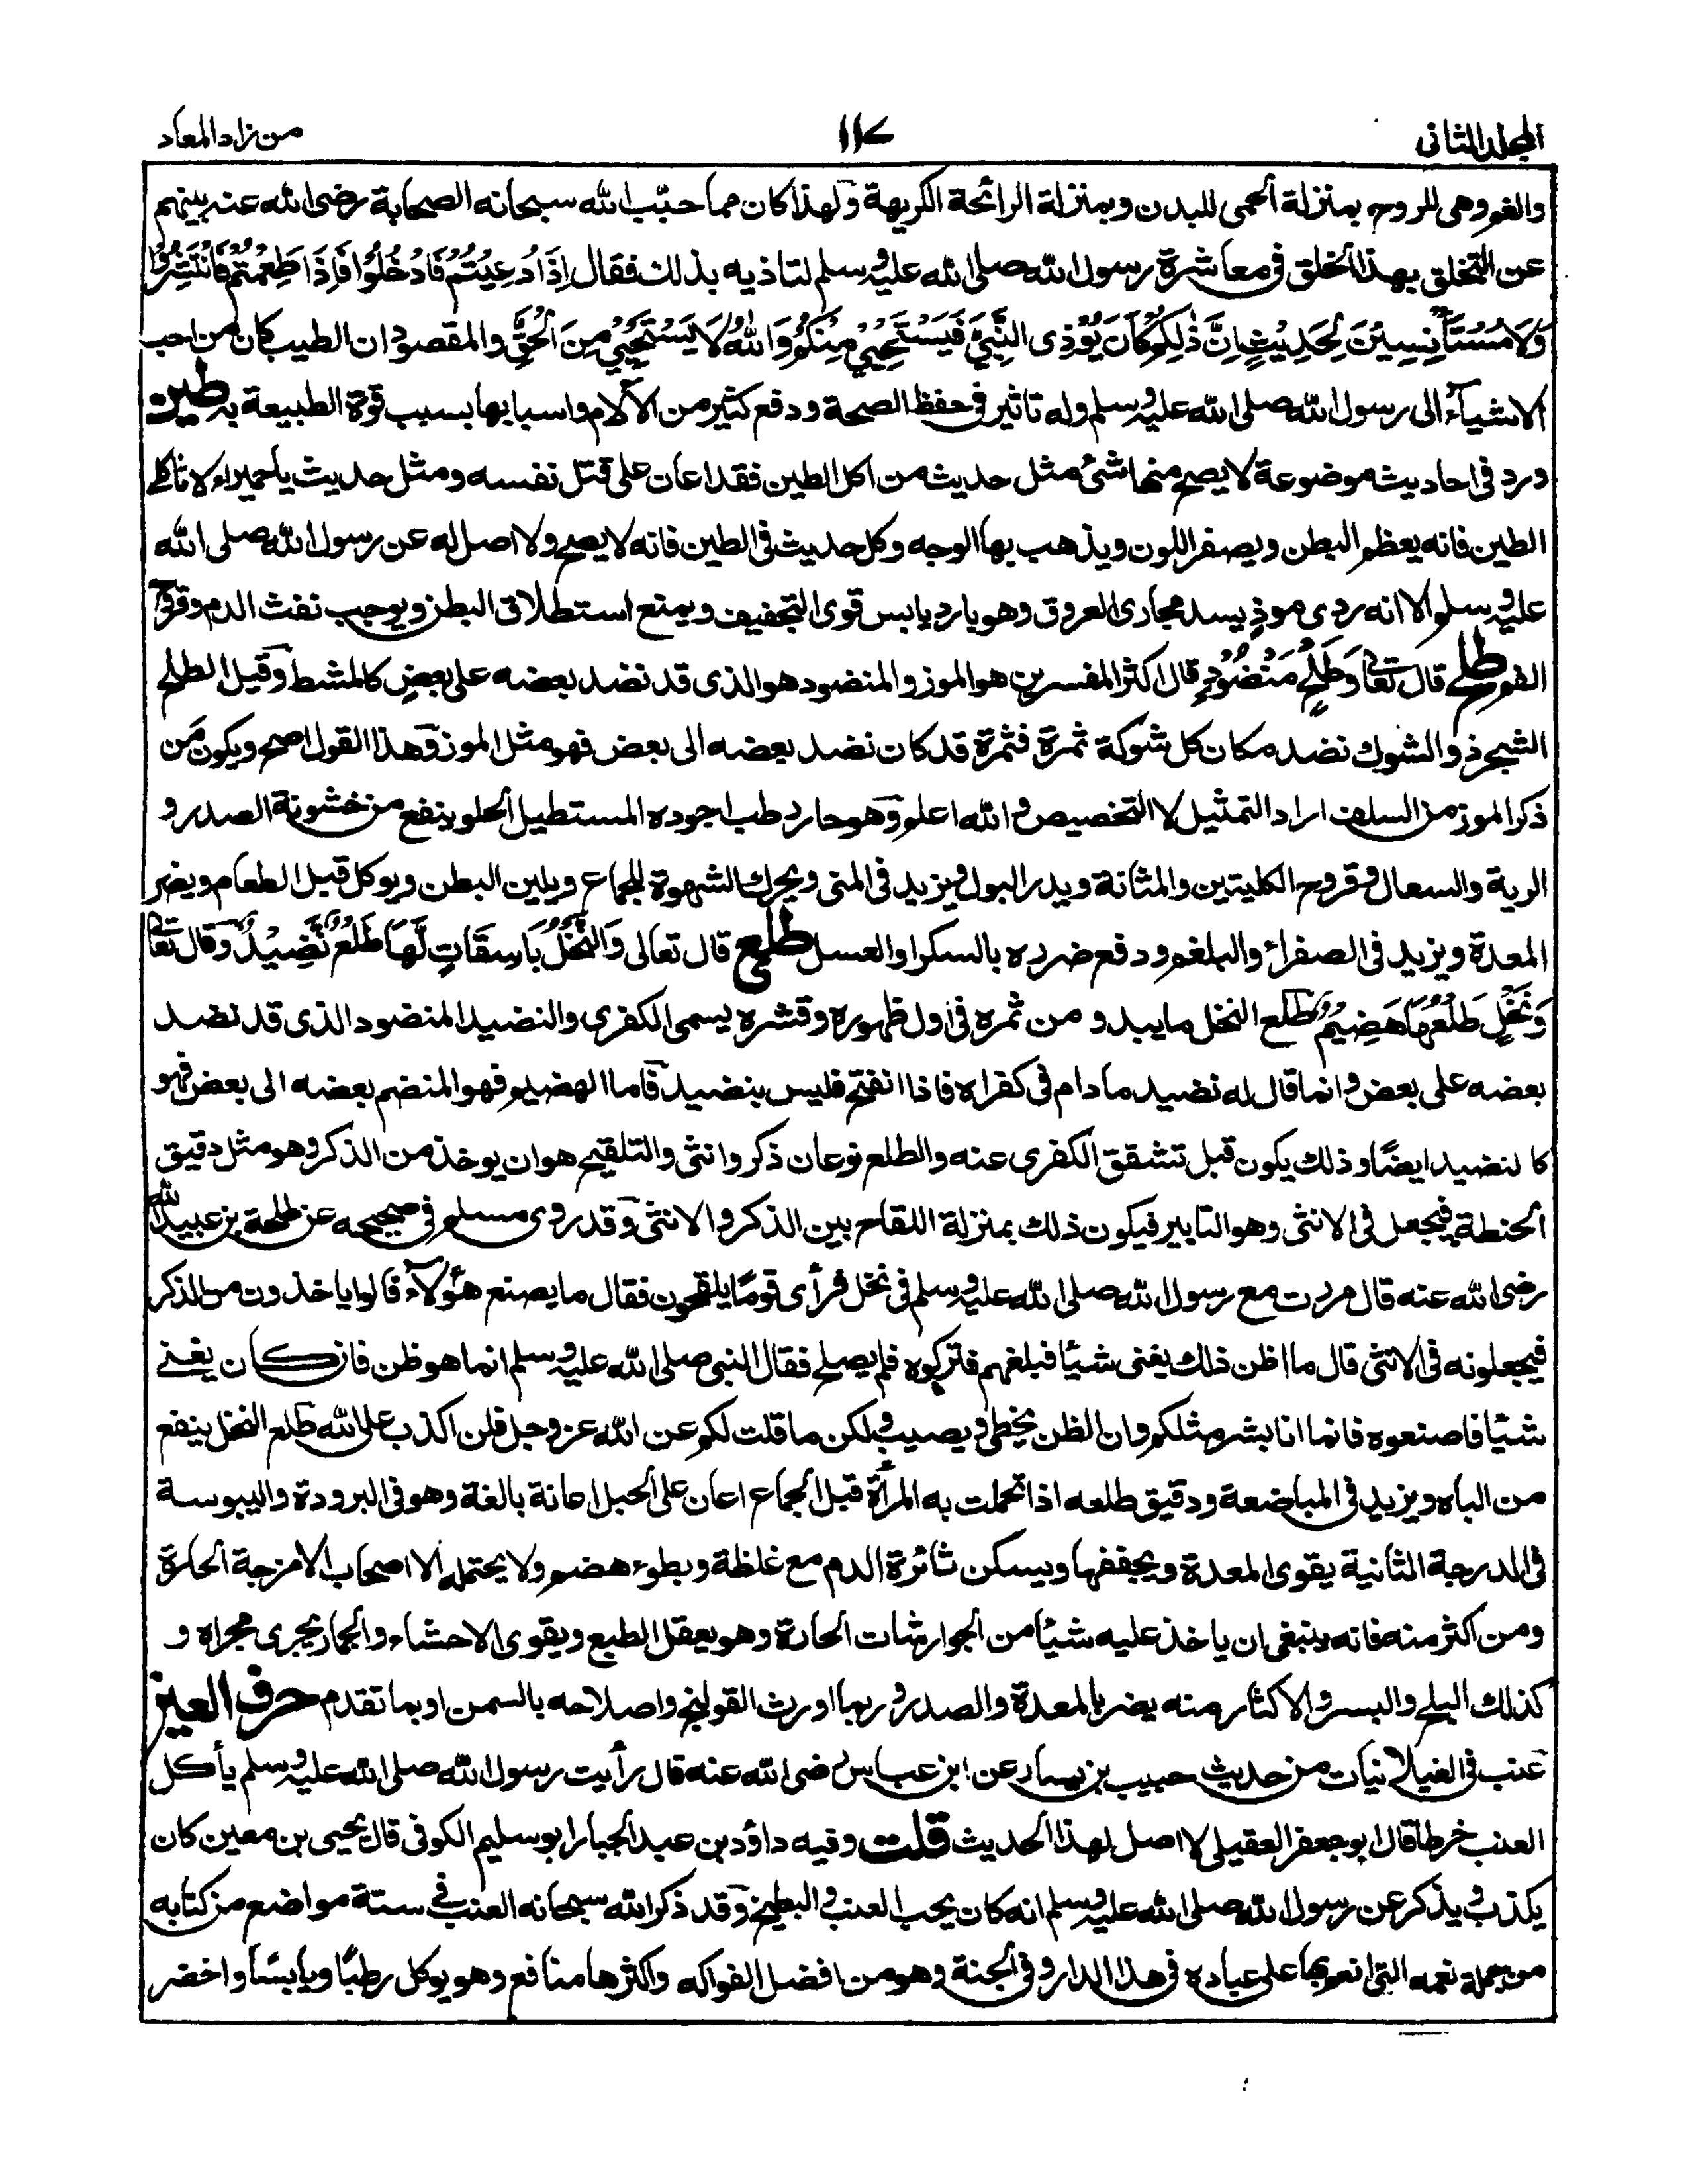 المجلد الثانى
١١٧
من زاد المعاد
والغم وهى للروح بمنزلة الحمى للبدن وبمنزلة الرائحة الكريهة ولهذا كان مما حبّب الله سبحانه الصحابة رضى الله عنهم بينهم
عن التخلق بهذا الخلق فى معاشرة رسول الله صلى الله عليه وسلم لتاذيه بذلك فقال اِذَا دُعِيْتُمْ فَادْخُلُوْا فَاِذَا طَعِمْتُمْ فَانْتَشِرُوْا
وَلَا مُسْتَأْنِسِيْنَ لِحَدِيْثٍ اِنَّ ذٰلِكُمْ كَانَ يُؤْذِى النَّبِىَّ فَيَسْتَحْيِيْ مِنْكُمْ وَاللّٰهُ لَا يَسْتَحْيِيْ مِنَ الْحَقِّ والمقصود ان الطيب كان من احب
الاشياء الى رسول الله صلى الله عليه وسلم وله تاثير فى حفظ الصحة ودفع كثير من الآلام واسبابها بسبب قوة الطبيعة به طين
ورد فى احاديث موضوعة لا يصح منها شئ مثل حديث من اكل الطين فقد اعان على قتل نفسه ومثل حديث يا حميراء لا تاكلى
الطين فانه يعظم البطن ويصفر اللون ويذهب بها الوجه وكل حديث فى الطين فانه لا يصح ولا اصل له عن رسول الله صلى الله
عليه وسلم الا انه ردى موذٍ يسد مجارى العروق وهو بارد يابس قوى التجفيف ويمنع استطلاق البطن ويوجب نفث الدم وقروح
الفم طلح قال تعالى وَطَلْحٍ مَنْضُوْدٍ قال اكثر المفسرين هو الموز والمنضود هو الذى قد نضد بعضه على بعضٍ كالمشط وقيل الطلح
الشجر ذو الشوك نضد مكان كل شوكة ثمرة فثمرة قد كان نضد بعضه الى بعض فهو مثل الموز وهذا القول اصح ويكون من
ذكر الموز من السلف اراد التمثيل لا التخصيص والله اعلم وهو حار رطب اجوده المستطيل الحلو ينفع من خشونة الصدر و
الرية والسعال وقروح الكليتين والمثانة ويدر البول ويزيد فى المنى ويحرك الشهوة للجماع ويلين البطن ويوكل قبل الطعام ويضر
المعدة ويزيد فى الصفراء والبلغم ودفع ضرره بالسكر او العسل طلع قال تعالى وَالنَّخْلَ بَاسِقَاتٍ لَّهَا طَلْعٌ نَّضِيْدٌ وقال تعالى
وَنَخْلٍ طَلْعُهَا هَضِيْمٌ طلع النخل ما يبدو من ثمره فى اول ظهوره وقشره يسمى الكفرى والنضيد المنضود الذى قد نضد
بعضه على بعض وانما قال له نضيد ما دام فى كفراه فاذا انفتح فليس بنضيد فاما الهضيم فهو المنضم بعضه الى بعض فهو
كالنضيد ايضًا وذلك يكون قبل تشقق الكفرى عنه والطلع نوعان ذكر وانثى والتلقيح هو ان يوخذ من الذكر وهو مثل دقيق
الحنطة فيجعل فى الانثى وهو التابير فيكون ذلك بمنزلة اللقاح بين الذكر والانثى وقد روى مسلم فى صحيحه عن طلحة بن عبيد الله
رضى الله عنه قال مردت مع رسول الله صلى الله عليه وسلم فى نخل فرأى قومًا يلقحون فقال ما يصنع هؤلاء قالوا ياخذون من الذكر
فيجعلونه فى الانثى قال ما اظن ذلك يغنى شيئا فبلغهم فتركوه فلم يصلح فقال النبى صلى الله عليه وسلم انما هو ظن فان كان يغنے
شيئا فاصنعوه فانما انا بشر مثلكم وان الظن يخطى ويصيب ولكن ما قلت لكم عن الله عز وجل فلن اكذب على الله طلع النخل ينفع
من الباه ويزيد فى المباضعة ودقيق طلعه اذا تحملت به المرأة قبل الجماع اعان على الحبل اعانة بالغة وهو فى البرودة واليبوسة
فى الدرجة الثانية يقوى المعدة ويجففها ويسكن ثائرة الدم مع غلظة وبطوء هضم ولا يحتمله الا اصحاب الامزجة الحارة
ومن اكثر منه فانه ينبغى ان ياخذ عليه شيئا من الجوارشات الحارة وهو يعقل الطبع ويقوى الاحشاء والجمار يجرى مجراه و
كذلك البلح والبسر والاكثار منه يضر بالمعدة والصدر وربما اورث القولنج واصلاحه بالسمن او بما تقدم حرف العين
عنب فى الغيلانيات من حديث حبيب بن يسار عن ابن عباس رضى الله عنه قال رأيت رسول الله صلى الله عليه وسلم يأكل
العنب خرطا قال ابو جعفر العقيلى لا اصل لهذا الحديث قلت وفيه داؤد بن عبد الجبار ابو سليم الكوفى قال يحيى بن معين كان
يكذب ويذكر عن رسول الله صلى الله عليه وسلم انه كان يحب العنب والبطيخ وقد ذكر الله سبحانه العنب فى ستة مواضع من كتابه
من جملة نعمه التى انعم بها على عباده فى هذا الدار وفى الجنة وهو من افضل الفواكه واكثرها منافع وهو يوكل رطبًا ويابسًا واخضر